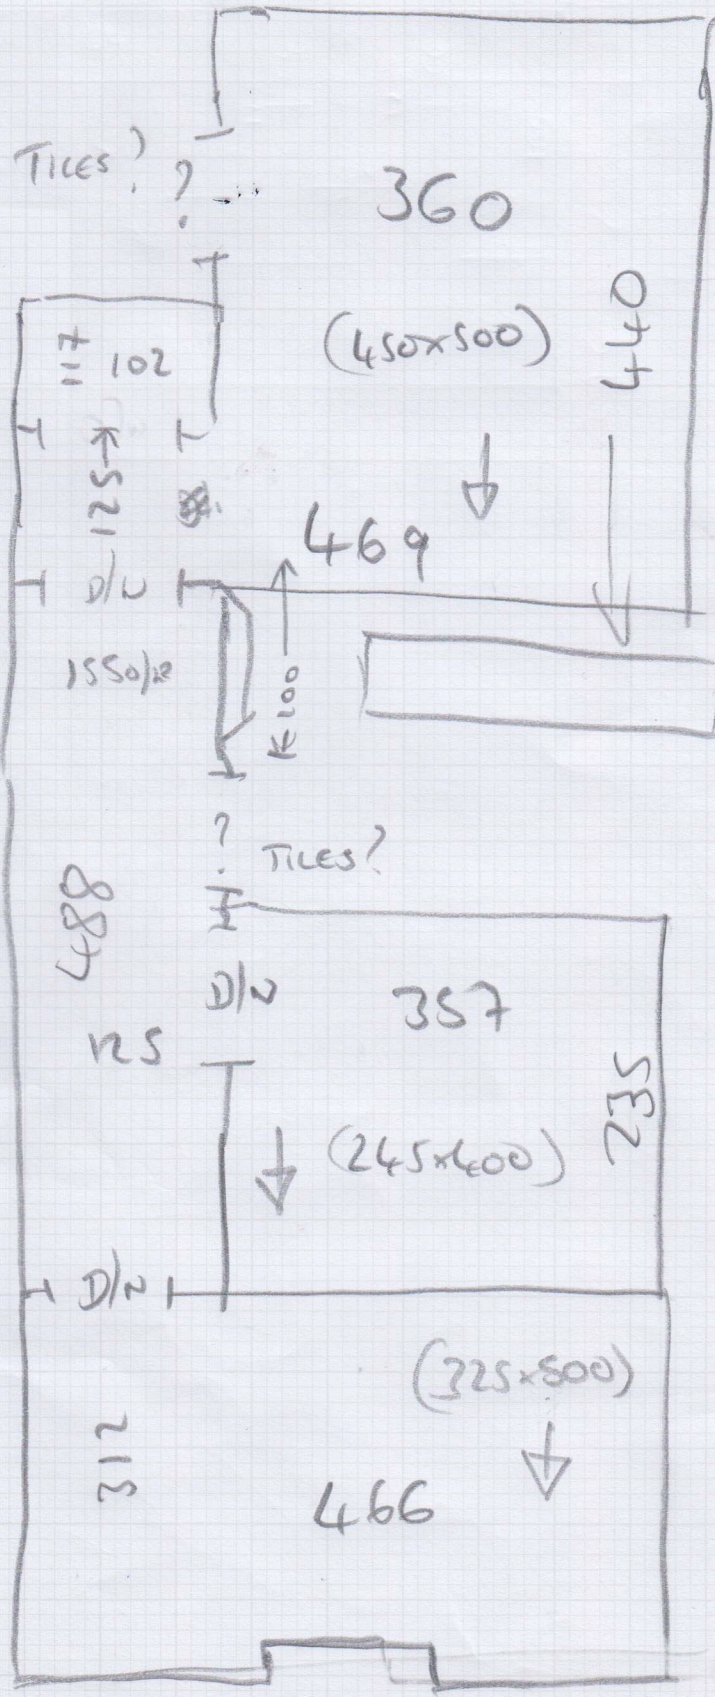 TILES?
?
360
(450x500)
440
117
102
125
469
D/N
200
?
TILES?
488
D/N
357
125
235
(245x400)
D/N
(325x500)
312
466